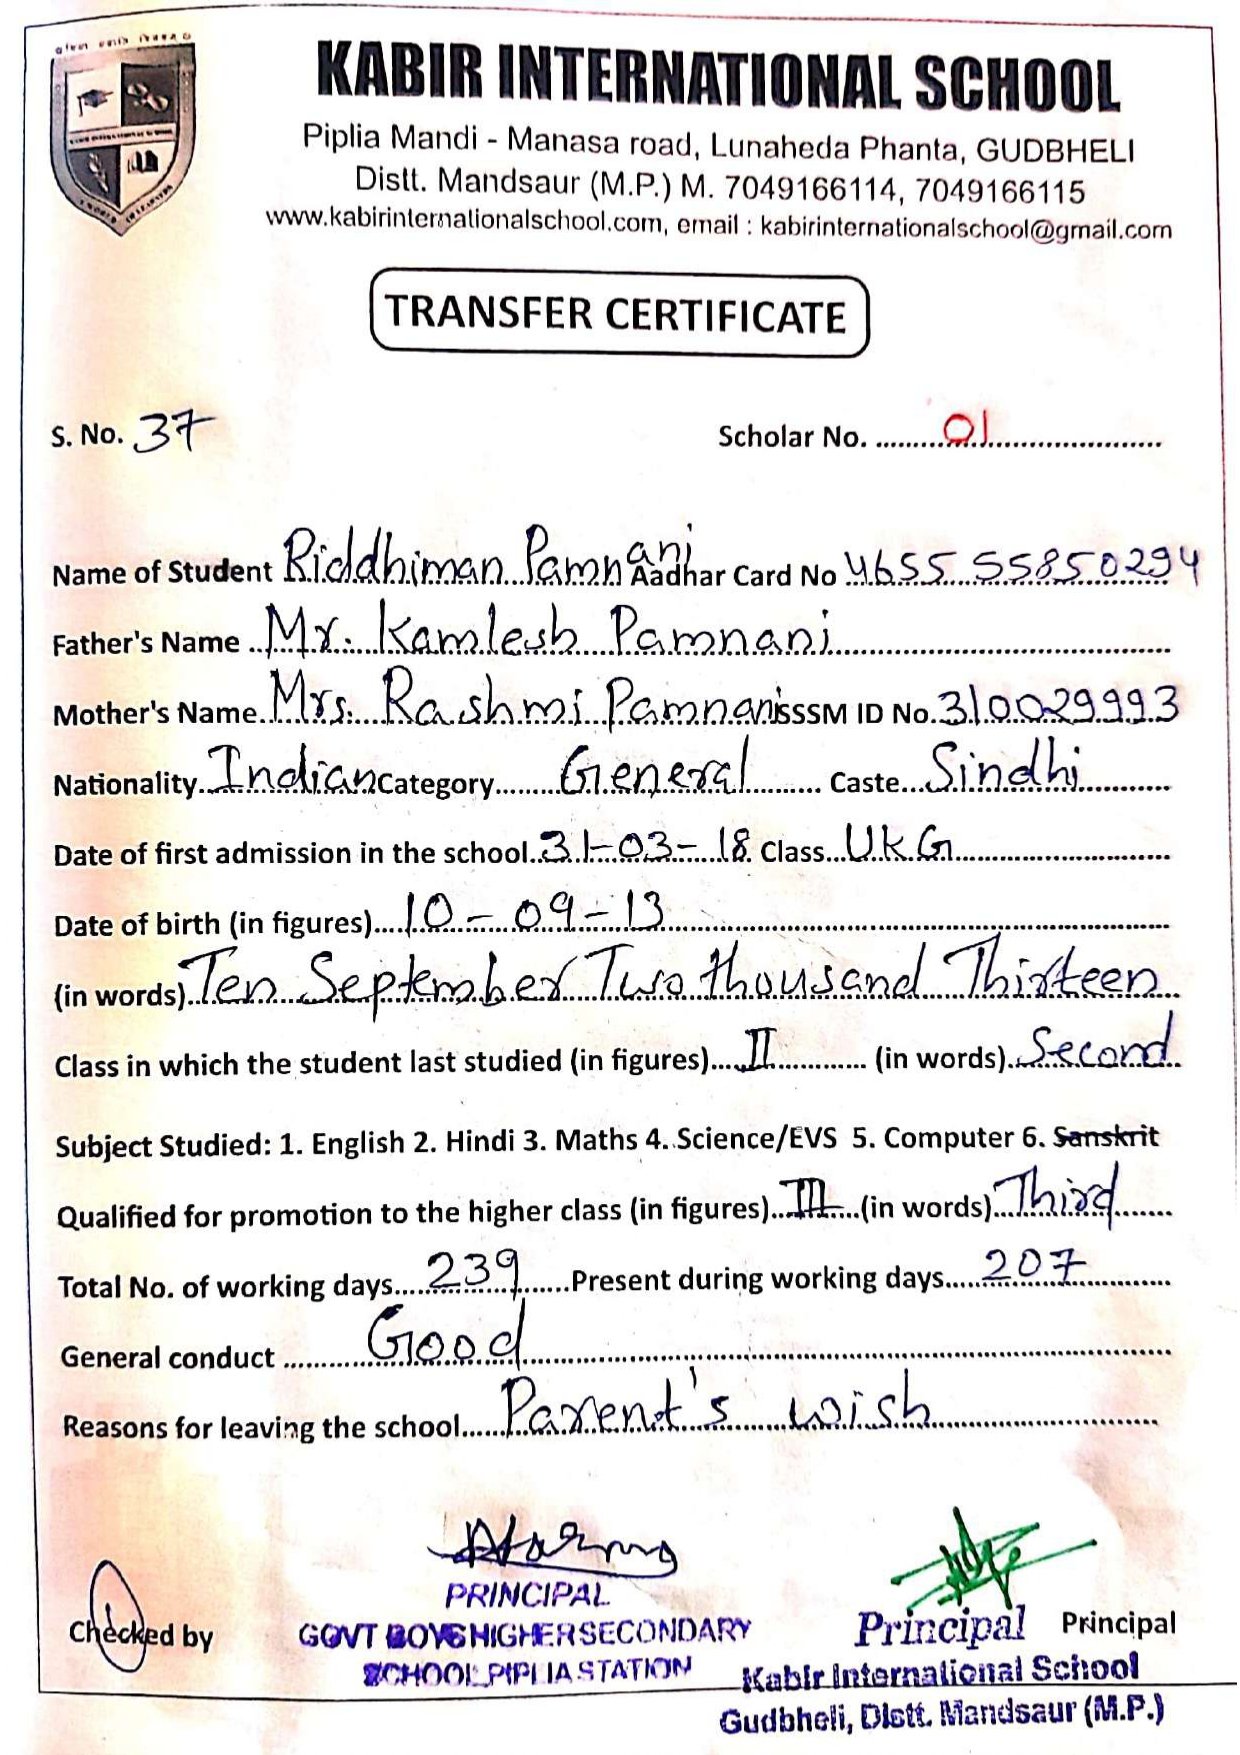 KABIR INTERNATIONAL SCHOOL
Piplia Mandi - Manasa road, Lunaheda Phanta, GUDBHELI
Distt. Mandsaur (M.P.) M. 7049166114, 7049166115
www.kabirinternationalschool.com, email : kabirinternationalschool@gmail.com
TRANSFER CERTIFICATE
S. No. 37 Scholar No. 01
Name of Student Riddhiman Pamnani Aadhar Card No 4655 55850294
Father's Name Mr. Kamlesh Pamnani
Mother's Name Mrs. Rashmi Pamnani SSSM ID No. 310029993
Nationality Indian Category General Caste Sindhi
Date of first admission in the school 31-03-18 Class U.K.G
Date of birth (in figures) 10-09-13
(in words) Ten September Two thousand Thirteen
Class in which the student last studied (in figures) II (in words) Second
Subject Studied: 1. English 2. Hindi 3. Maths 4. Science/EVS 5. Computer 6. Sanskrit
Qualified for promotion to the higher class (in figures) III (in words) Third
Total No. of working days 239 Present during working days 207
General conduct Good
Reasons for leaving the school Parent's wish
Checked by
PRINCIPAL
GOVT BOYS HIGHER SECONDARY
SCHOOL PIPLIA STATION
Principal Principal
Kabir International School
Gudbheli, Distt. Mandsaur (M.P.)